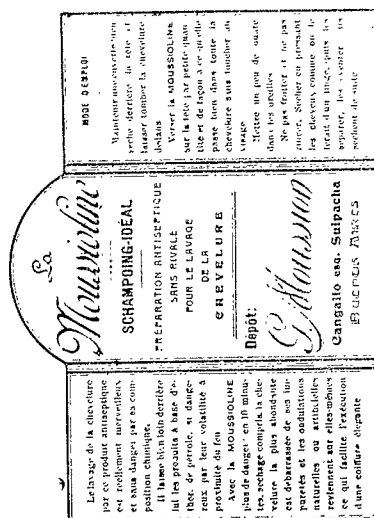 Le lavage de la chevelure
par ce produit antiseptique
est reellement merveilleux
et sans danger par sa com-
position chimique.
Il laisse bien loin derrière
lui les produits à base d'é-
ther, de pétrole, si dange-
reux par leur volatilité à
proximité du feu
Avec la MOUSSIOLINE
plus de danger: en 10 minu-
tes, sechage compris la che-
velure la plus abondante
est debarrassée de ses im-
puretés et les ondulations
naturelles ou artificielles
reviennent sur elles-mêmes
ce qui facilite l'exécution
d'une coiffure élégante
La
Moussioline
SCHAMPOING-IDÉAL
PRÉPARATION ANTISEPTIQUE
SANS RIVALE
POUR LE LAVAGE
DE LA
CHEVELURE
Dépôt:
G. Mousson
Cangallo esq. Suipacha
BUENOS AIRES
MODE D'EMPLOI
Maintenir une cuvette bien
sèche derrière la tête et
laisser tomber la chevelure
dedans
Verser la MOUSSIOLINE
sur la tête par petite quan-
tité et de façon a ce qu'elle
passe bien dans toute la
chevelure sans toucher au
visage
Mettre un peu de ouate
dans les oreilles
Ne pas frotter et ne pas
rincer. Secher en pressant
les cheveux comme on le
ferait d'un linge, puis les
séparer, les
sechent de suite